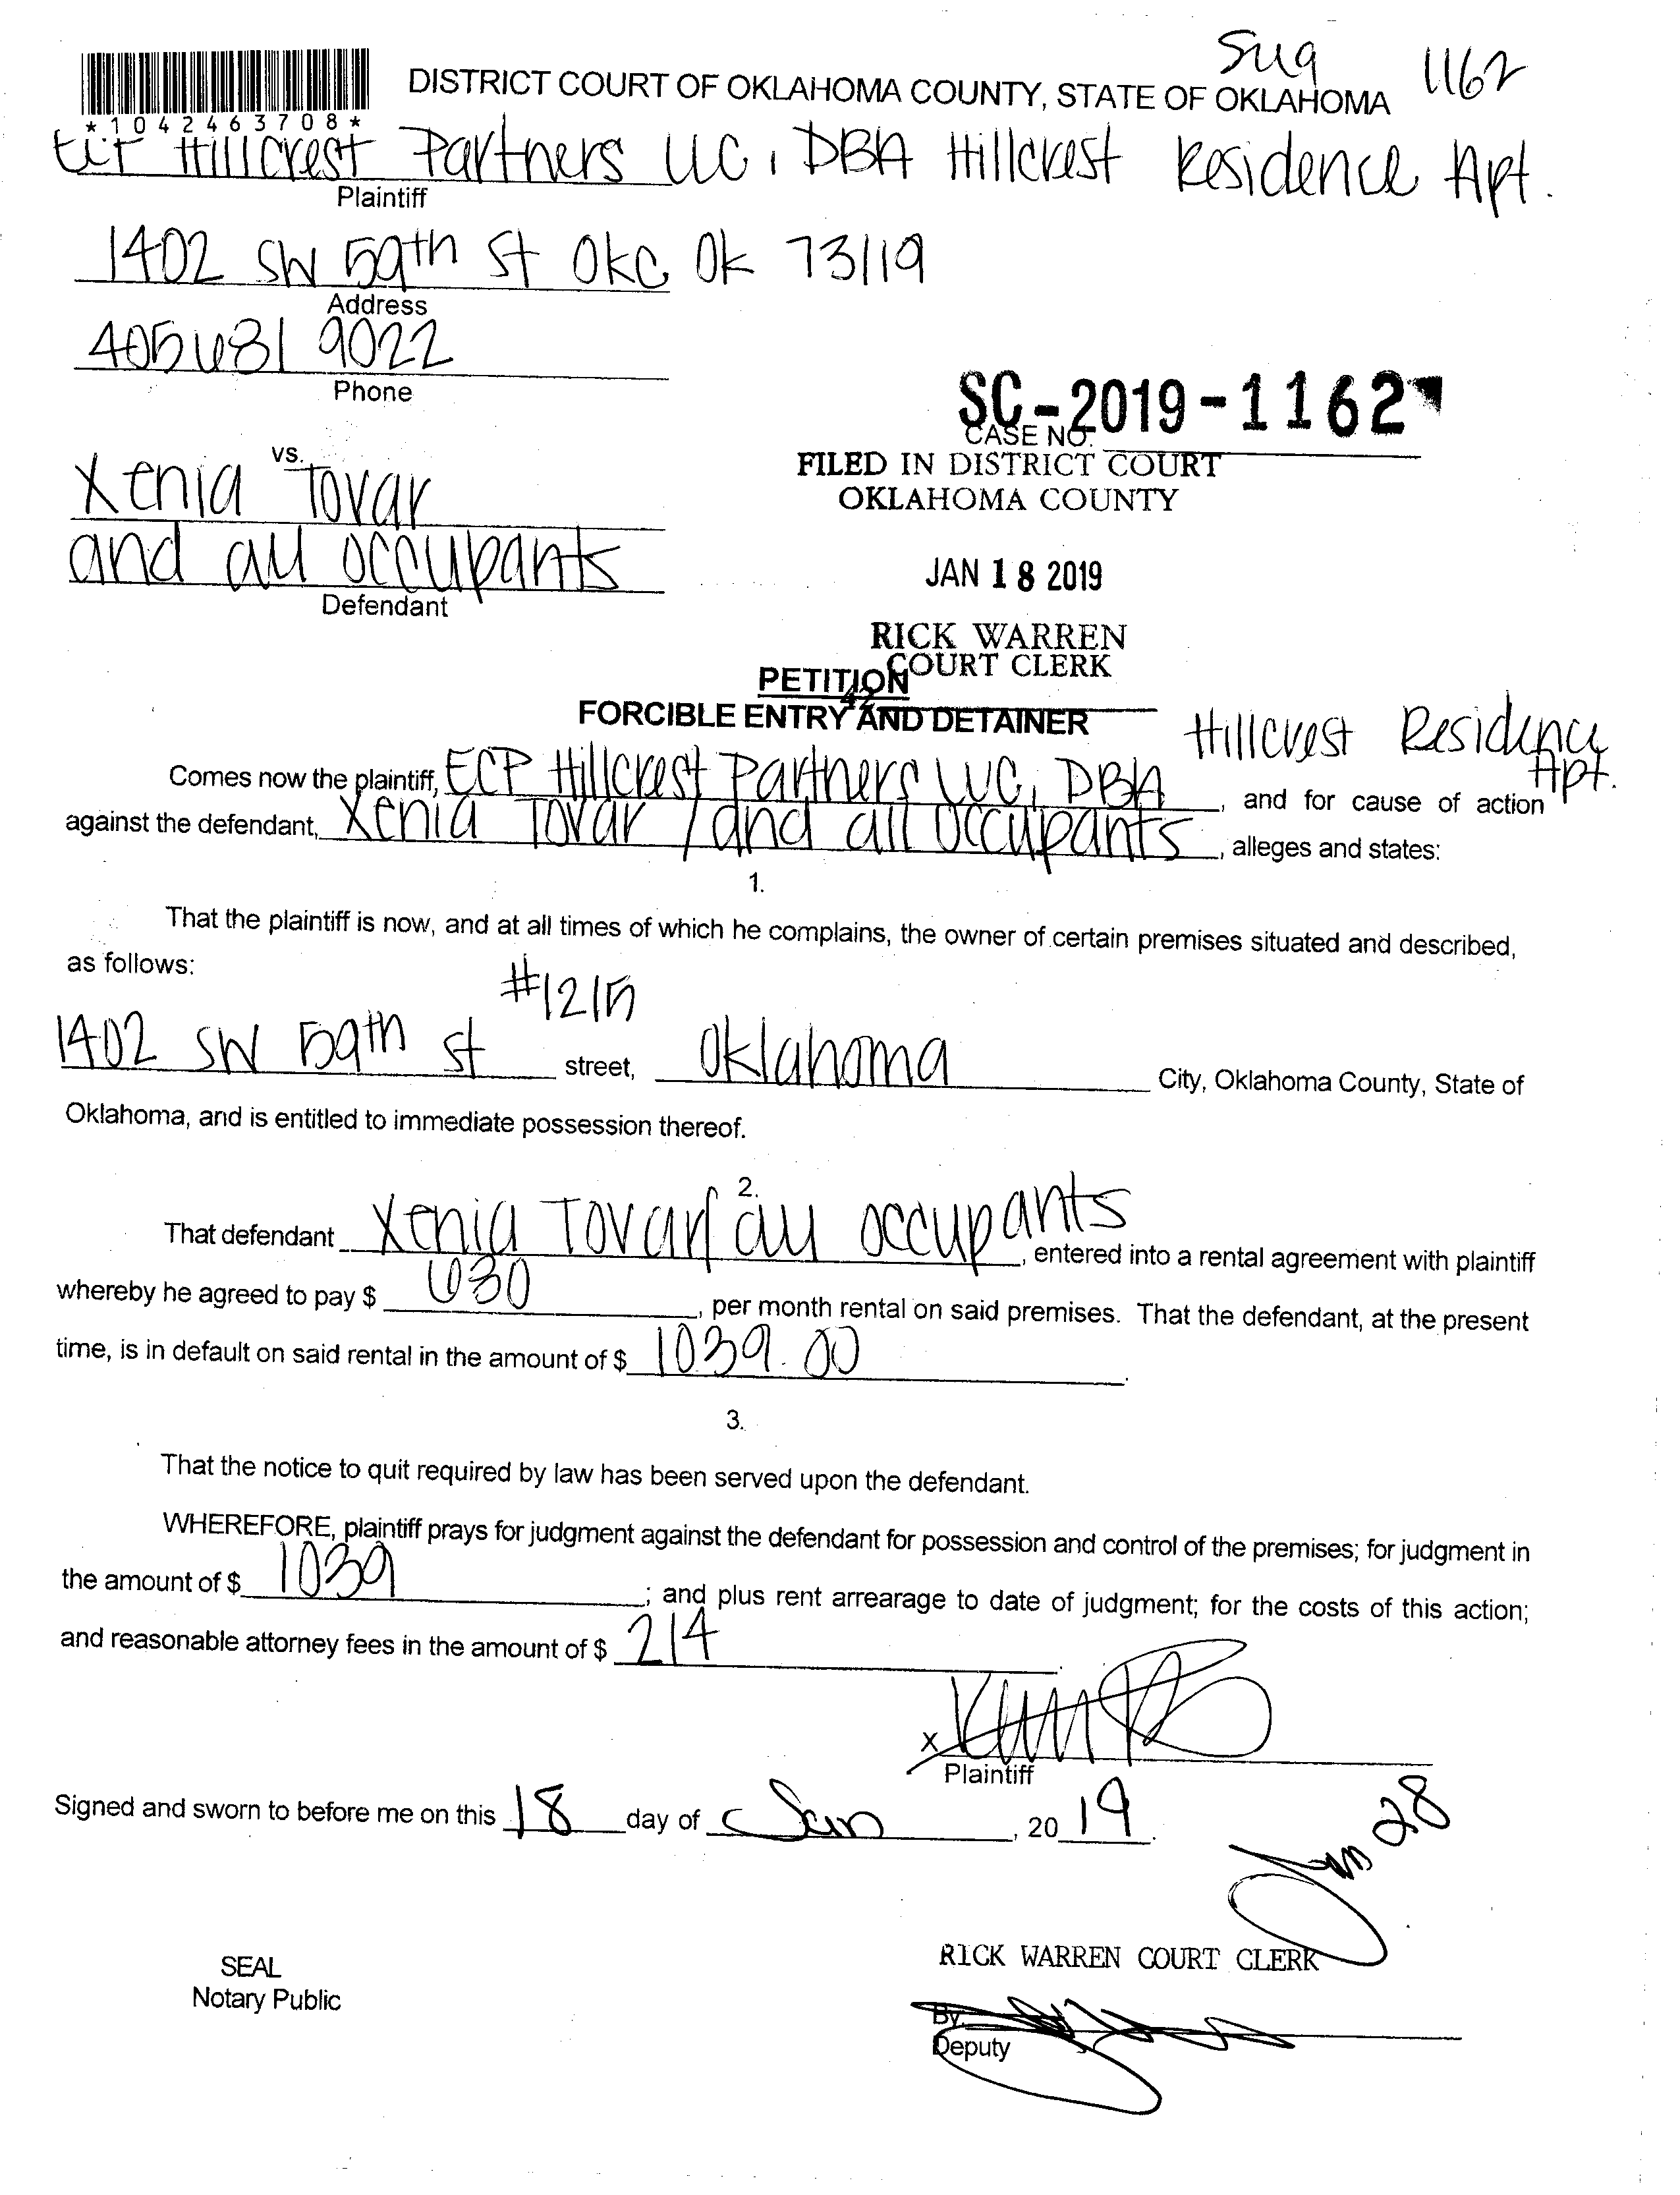 Sug 1162
DISTRICT COURT OF OKLAHOMA COUNTY, STATE OF OKLAHOMA
*1042463708*
ECP Hillcrest Partners LLC, DBA Hillcrest Residence Apt.
Plaintiff
1402 SW 59th St OKC OK 73119
Address
405 681 9022
Phone
SC-2019-1162
CASE NO.
vs.
Xenia Tovar
FILED IN DISTRICT COURT
OKLAHOMA COUNTY
and all occupants
Defendant
JAN 18 2019
RICK WARREN
COURT CLERK
PETITION
42
FORCIBLE ENTRY AND DETAINER
Hillcrest Residence Apt.
Comes now the plaintiff, ECP Hillcrest Partners LLC, DBA, and for cause of action
against the defendant, Xenia Tovar / and all occupants, alleges and states:
1.
That the plaintiff is now, and at all times of which he complains, the owner of certain premises situated and described,
as follows:
#1215
1402 SW 59th St street, Oklahoma City, Oklahoma County, State of
Oklahoma, and is entitled to immediate possession thereof.
2.
That defendant Xenia Tovar/ all occupants, entered into a rental agreement with plaintiff
whereby he agreed to pay $ 630, per month rental on said premises. That the defendant, at the present
time, is in default on said rental in the amount of $ 1039.00.
3.
That the notice to quit required by law has been served upon the defendant.
WHEREFORE, plaintiff prays for judgment against the defendant for possession and control of the premises; for judgment in
the amount of $ 1039; and plus rent arrearage to date of judgment; for the costs of this action;
and reasonable attorney fees in the amount of $ 214.
X
Plaintiff
Signed and sworn to before me on this 18 day of Jan, 20 19.
Jan 28
RICK WARREN COURT CLERK
SEAL
Notary Public
By
Deputy